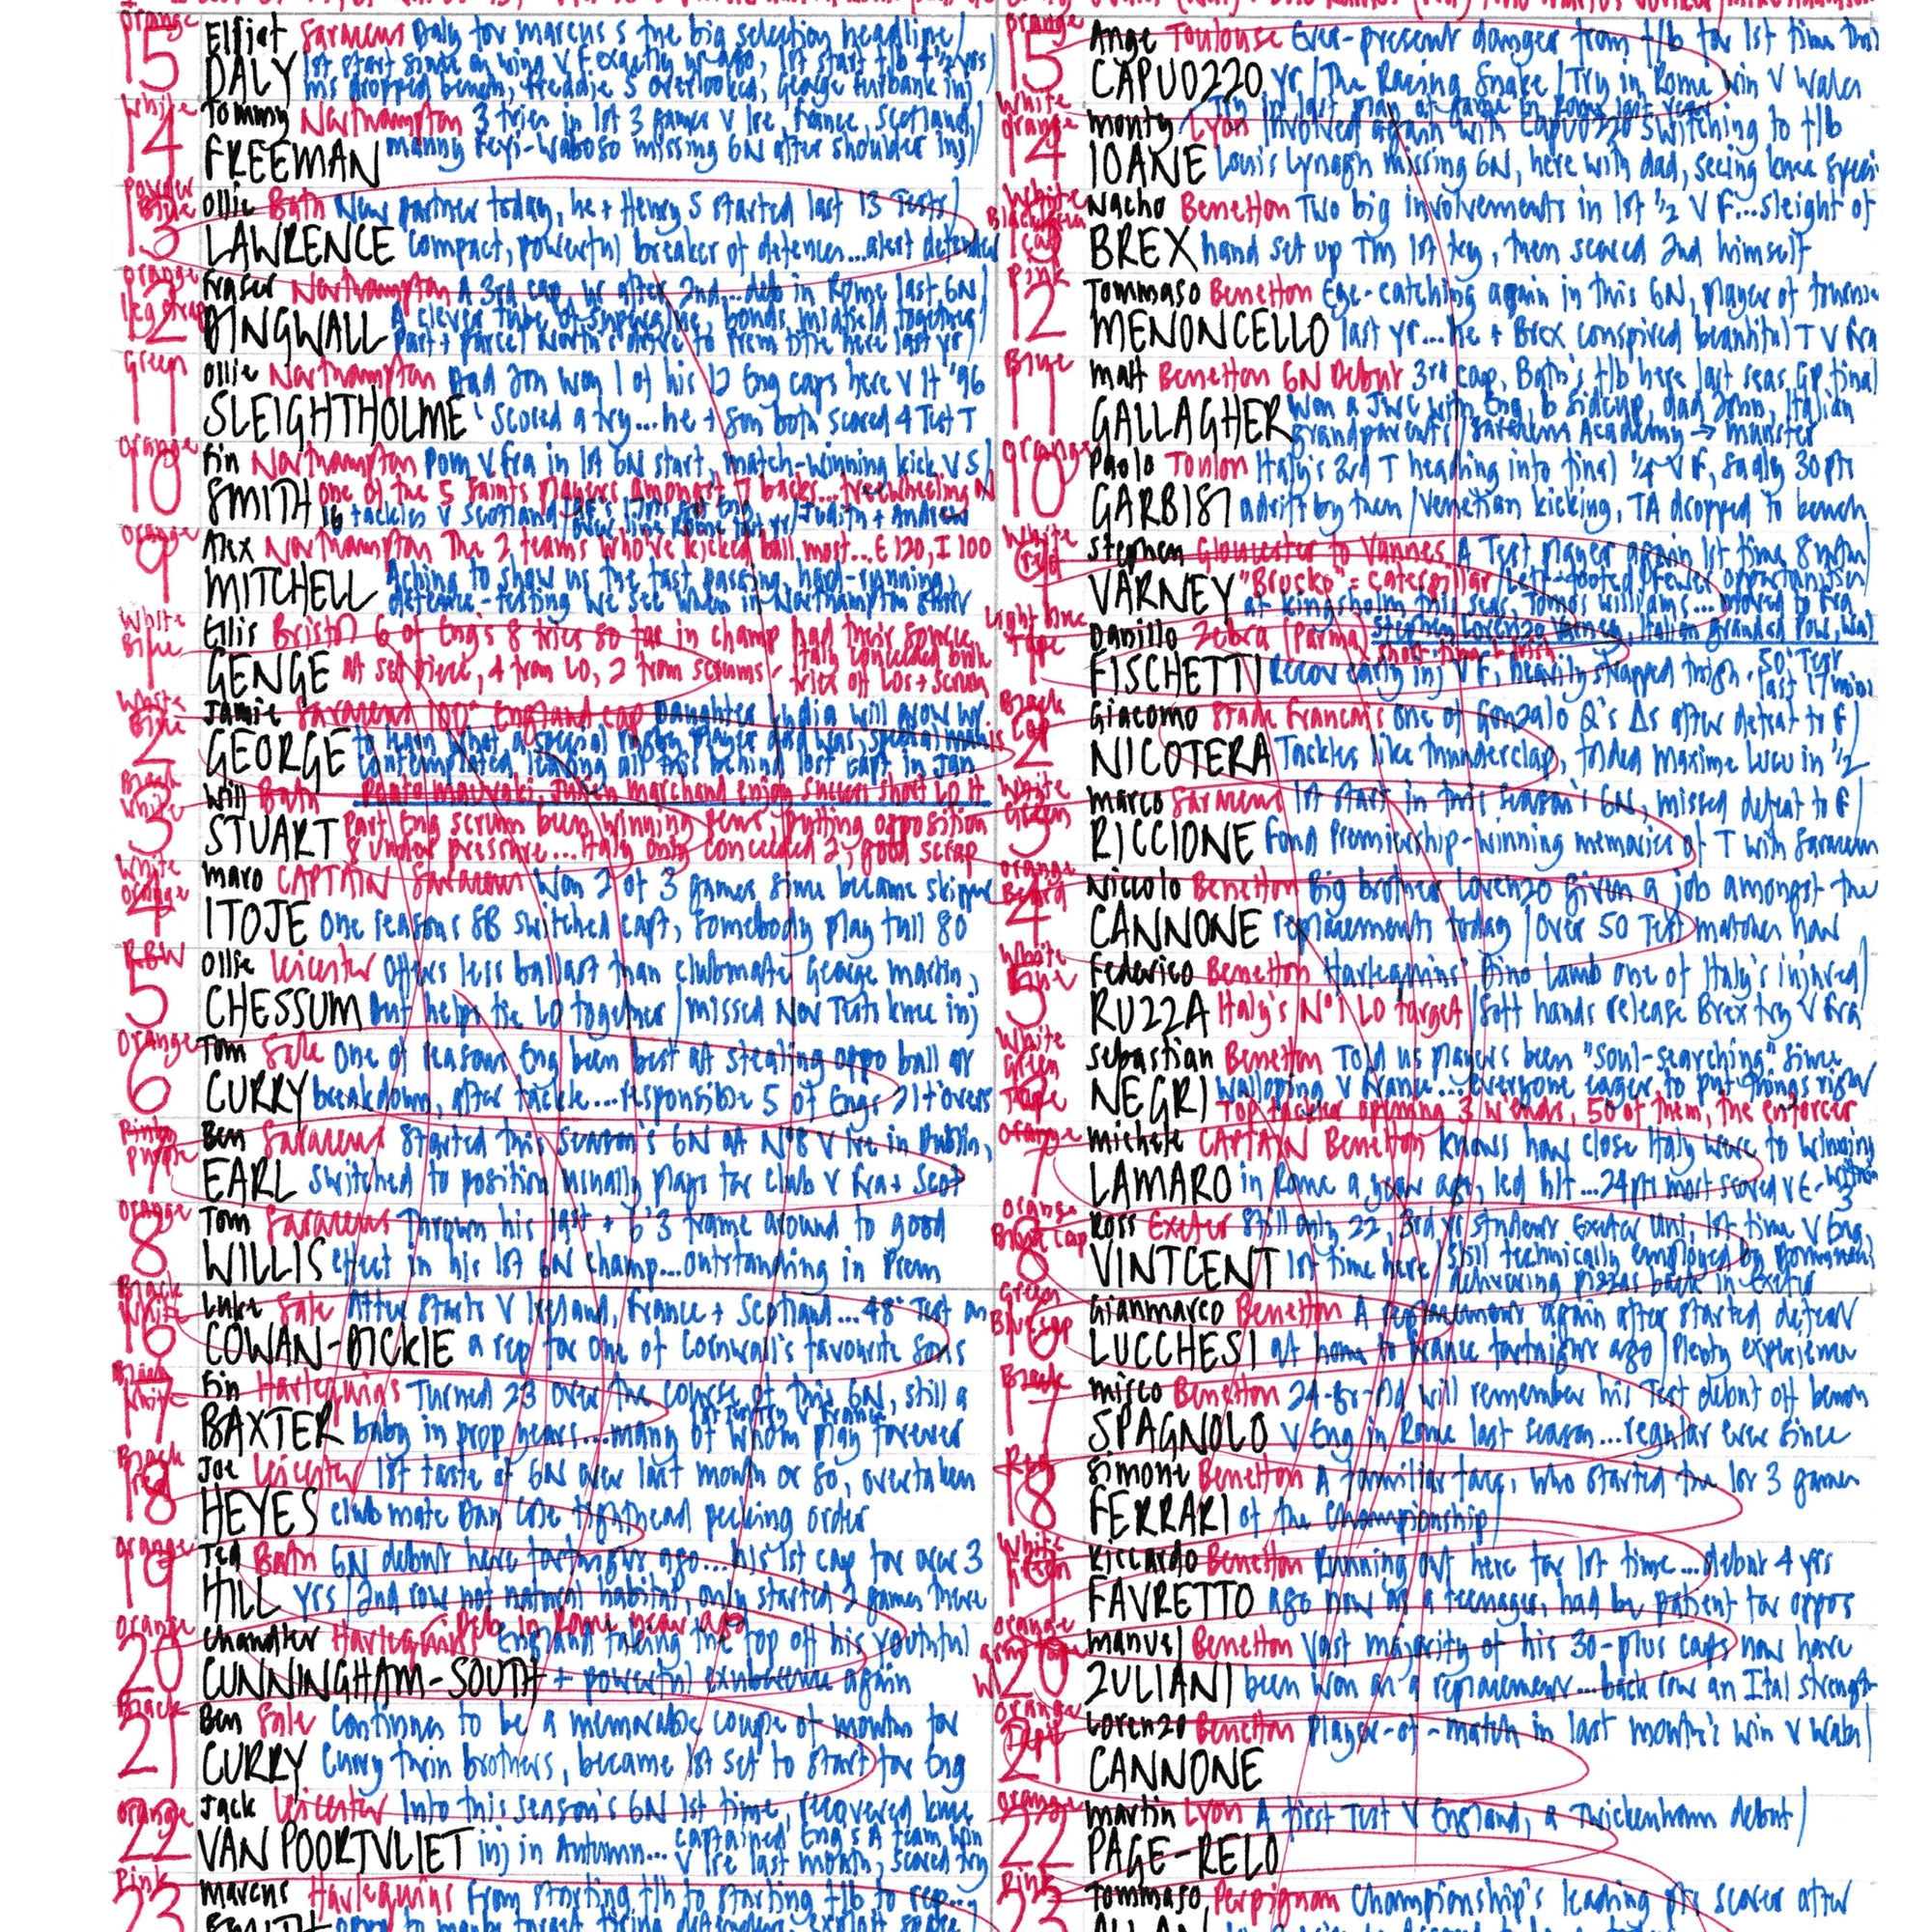 orange
15
Elliot Saracens Daly for Marcus S the big selection headline/
DALY 1st start since on wing v F exactly yr ago, 1st start f/b 4½ yrs/
MS dropped bench, Freddie S overlooked, George Furbank inj
White
14
Tommy Northampton 3 tries in 1st 3 games v Ire, France, Scotland/
FREEMAN Manny Feyi-Waboso missing 6N after shoulder inj
Powder Blue
13
Ollie Bath New partner today, he + Henry S started last 13 Tests/
LAWRENCE compact, powerful breaker of defences...alert defender
orange
leg strap
12
Fraser Northampton A 3rd cap, yr after 2nd...deb in Rome last 6N/
DINGWALL A clever tube of superglue, bonds midfield together/
Part + parcel North's drive to Prem title here last yr
Green
11
Ollie Northampton Dad Jon won 1 of his 12 Eng caps here v It '96
SLEIGHTHOLME scored a try...he + son both scored 4 Test T
orange
10
Fin Northampton Pom v Fra in 1st 6N start, match-winning kick v S/
SMITH one of the 5 Saints players amongst 7 backs...freewheeling
16 tackles v Scotland / Judith + Andrew
orange
9
Alex Northampton The 2 teams who've kicked ball most...E 120, I 100
MITCHELL Aching to show us the fast passing, hard-running,
defence-testing we see when in Northampton shirt
White
Blue
1
Ellis Bristol 6 of Eng's 8 tries so far in champ had their source
GENGE at set piece, 4 from LO, 2 from scrums - Italy conceded both
tries off LOs + scrum
White
Blue
2
Jamie Saracens 100th England cap Daughter Lydia will grow up
GEORGE to learn what a special rugby player dad was, special man
contemplated leaving all this behind lost capt in Jan
Black
White
3
Will Bath Peato Mauvaka, Julien Marchand enjoy success short LO It
STUART Part Eng scrum been winning pens, putting opposition
8 under pressure...Italy only conceded 2, good scrap
White
orange
4
Maro CAPTAIN Saracens Won 2 of 3 games since became skipper
ITOJE one reasons SB switched capt, somebody play full 80
RBW
5
Ollie Leicester Offers less ballast than clubmate George Martin,
CHESSUM but helps tie LO together / missed Nov Tests knee inj
Orange
6
Tom Sale One of reasons Eng been best at stealing oppo ball at
CURRY breakdown, after tackle....responsible 5 of Engs 21 t'overs
Pinky
purple
7
Ben Saracens Started this season's 6N at No8 v Ire in Dublin,
EARL switched to position usually plays for club v Fra + Scot
Orange
8
Tom Saracens Thrown his 19st + 6'3 frame around to good
WILLIS effect in his 1st 6N champ...outstanding in Prem
Black
White
16
Luke Sale After starts v Ireland, France + Scotland...48th Test as
COWAN-DICKIE a rep for one of Cornwall's favourite sons
Black
White
17
Fin Harlequins Turned 23 over the course of this 6N, still a
BAXTER baby in prop years....many of whom play forever
Black
18
Joe Leicester 1st taste of 6N over last month or so, overtaken
HEYES club mate Dan Cole tighthead pecking order
Orange
19
Ted Bath 6N debut here fortnight ago...his 1st cap for over 3
HILL yrs / 2nd row not natural habitat only started 2 games there
Orange
20
Deb in Rome year ago
Chandler Harlequins England taking the top off his youthful
CUNNINGHAM-SOUTH + powerful exuberance again
Black
21
Ben Sale Continues to be a memorable couple of months for
CURRY Curry twin brothers, became 1st set to start for Eng
orange
22
Jack Leicester Into this season's 6N 1st time, recovered knee
VAN POORTVLIET inj in Autumn... captained Eng's A team win
v Ire last month, scored try
Pink
23
Marcus Harlequins From starting f/h to starting f/b to rep...
orange
15
Ange Toulouse Ever-present danger from f/b for 1st time this
CAPUOZZO yr / The Racing Snake / Try in Rome win v Wales
Try in last play of game in Rome last year
White
orange
14
Monty Lyon Involved again with Capuozzo switching to f/b
IOANE Louis Lynagh missing 6N, here with dad, seeing knee speci
White
13
Nacho Benetton Two big involvements in 1st ½ v F...sleight of
BREX hand set up TM 1st try, then scored 2nd himself
Pink
12
Tommaso Benetton Eye-catching again in this 6N, player of tourna
MENONCELLO last yr...he + Brex conspired beautiful T v Fra
Blue
11
Matt Benetton 6N Debut 3rd cap, Bath's f/b here last seas GP final
GALLAGHER Won a JWC with Eng, b Sidcup, dad John, Italian
grandparents / Saracens Academy → Munster
orange
10
Paolo Toulon Italy's 3rd T heading into final ¼ v F, sadly 30 pts
GARBISI adrift by then / Venetian kicking, TA dropped to bench
White
9
Stephen Gloucester to Vannes A Test player again 1st time 8 mths/
VARNEY "Brucko" = caterpillar / Left-footed / Fewer opportunities/
at Kingsholm this seas, Tomos Williams... moved to Fra
Light blue
Tape
1
Danilo Zebre (Parma) Stephen Lorenzo Varney, Italian grandad POW, Wal
FISCHETTI Recov early inj v F, heavily strapped thigh. 50th Test
last 17 mins
Black
Cap
2
Giacomo Stade Francais one of Gonzalo Q's Δs after defeat to F/
NICOTERA Tackles like thunderclap, folded Maxime Lucu in ½
White
Green
3
Marco Saracens 1st start in this season's 6N, missed defeat to F/
RICCIONE Fond Premiership-winning memories of T with Saracens
orange
Beard
4
Niccolo Benetton Big brother Lorenzo given a job amongst the
CANNONE replacements today / Over 50 Test matches now
White
5
Federico Benetton Harlequins' Dino Lamb one of Italy's injured/
RUZZA Italy's No1 LO target / Soft hands release Brex try v Fra
White
Green
Tape
6
Sebastian Benetton Told us players been "soul-searching" since
NEGRI walloping v France...everyone eager to put things right
Top tackler opening 3 w'ends, 50 of them, the enforcer
Orange
7
Michele CAPTAIN Benetton knows how close Italy were to winning
LAMARO in Rome a year ago, led h/t...24pts most scored v E - within
3
Orange
8
Ross Exeter Still only 22, 3rd yr student Exeter Uni, 1st time v Eng,
VINTCENT 1st time here / still technically employed by Dominoes
delivering pizzas back in Exeter
Green
16
Gianmarco Benetton A replacement again after started defeat
LUCCHESI at home to France fortnight ago / Plenty experience
Black
17
Mirco Benetton 24-yr-old will remember his Test debut off bench
SPAGNOLO v Eng in Rome last season...regular ever since
Red
18
Simone Benetton A familiar face, who started the 1st 3 games
FERRARI of the Championship/
White
19
Riccardo Benetton Running out here for 1st time...debut 4 yrs
FAVRETTO ago now as a teenager, had be patient for oppos
orange
20
Manuel Benetton Vast majority of his 30-plus caps now have
ZULIANI been won as a replacement...back row an Ital strength
Orange
Tape
21
Lorenzo Benetton Player-of-match in last month's win v Wales/
CANNONE
orange
22
Martin Lyon A first Test v England, a Twickenham debut/
PAGE-RELO
Pink
23
Tommaso Perpignan Championship's leading pts scorer after